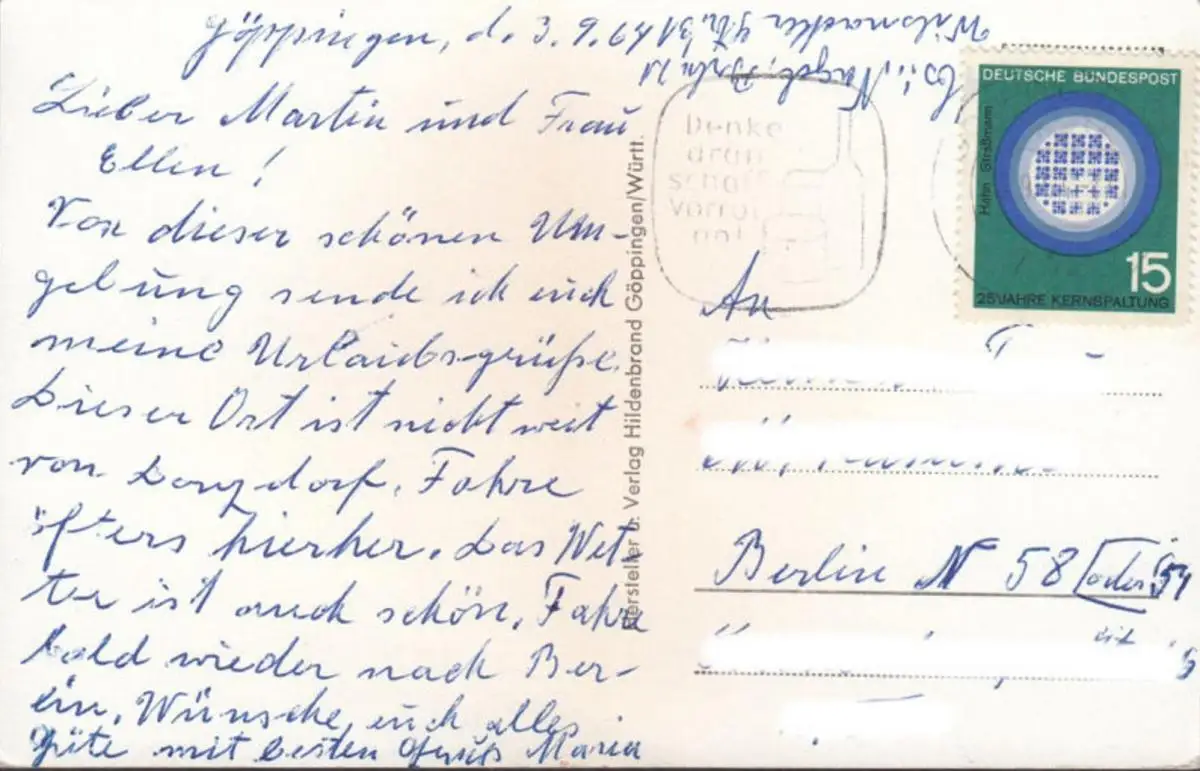 Göppingen, d. 3.9.64
Lieber Martin und Frau
Ellen!
Von dieser schönen Um-
gebung sende ich euch
meine Urlaubsgrüße.
Dieser Ort ist nicht weit
von. Fahre
öfters hierher. Das Wet-
ter ist auch schön. Fahre
bald wieder nach Ber-
lin. Wünsche euch alles
Gute mit besten Gruß Maria
Hersteller u. Verlag Hildenbrand Göppingen/Württ.
Abs.: Nagel, Berlin 21
Str. 31
Denke
dran
schaff
Vorrat
an!
DEUTSCHE BUNDESPOST
Hahn Straßmann
15
25 JAHRE KERNSPALTUNG
An
Berlin N 58 oder 54